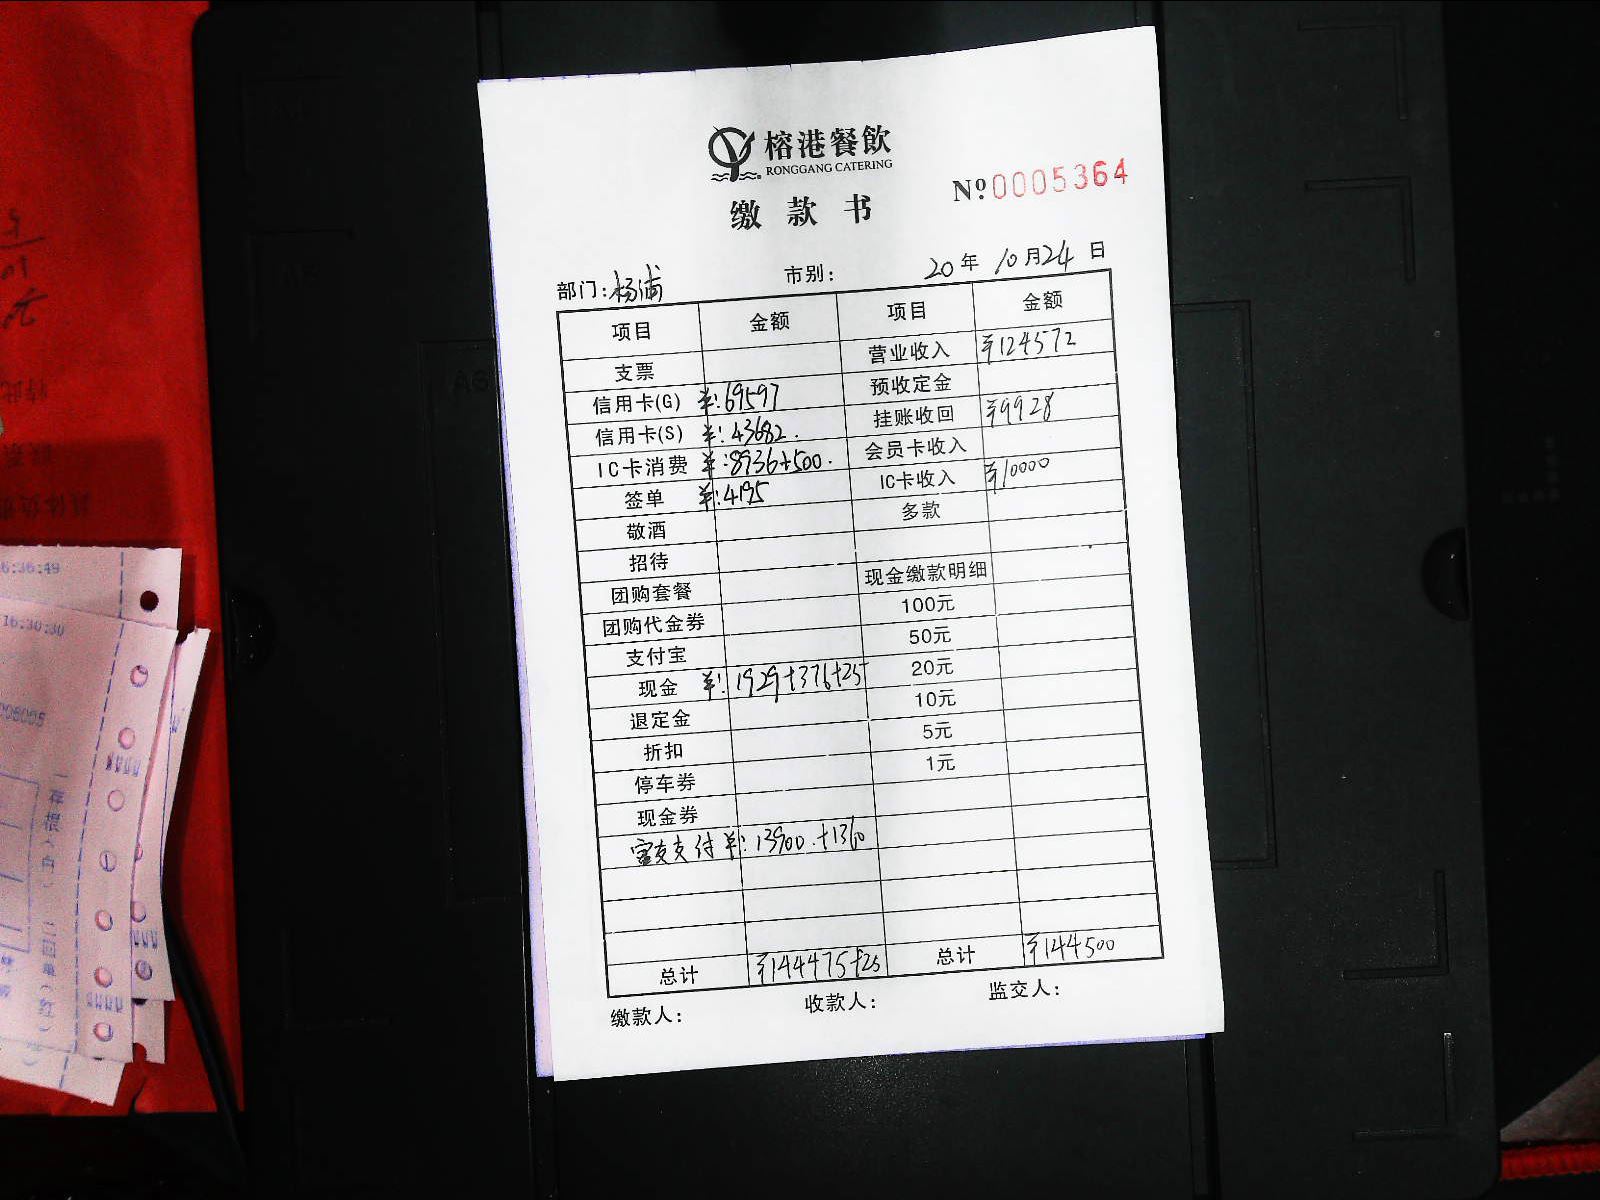 榕港餐飲
RONGGANG CATERING
缴款书
Nº0005364
部门:杨浦 市别: 20年10月24日
项目 金额 项目 金额
支票 营业收入 ¥124572
信用卡(G) ¥:69597 预收定金
信用卡(S) ¥:43682. 挂账收回 ¥9928
IC卡消费 ¥:8936+500. 会员卡收入
签单 ¥:4195 IC卡收入 ¥10000
敬酒 多款
招待
团购套餐 现金缴款明细
团购代金券 100元
支付宝 50元
现金 ¥:1929+376+25 20元
退定金 10元
折扣 5元
停车券 1元
现金券
支付 ¥:13900.+1360
总计 ¥144475+25 总计 ¥144500
缴款人: 收款人: 监交人:
6:36:49
16:30:30